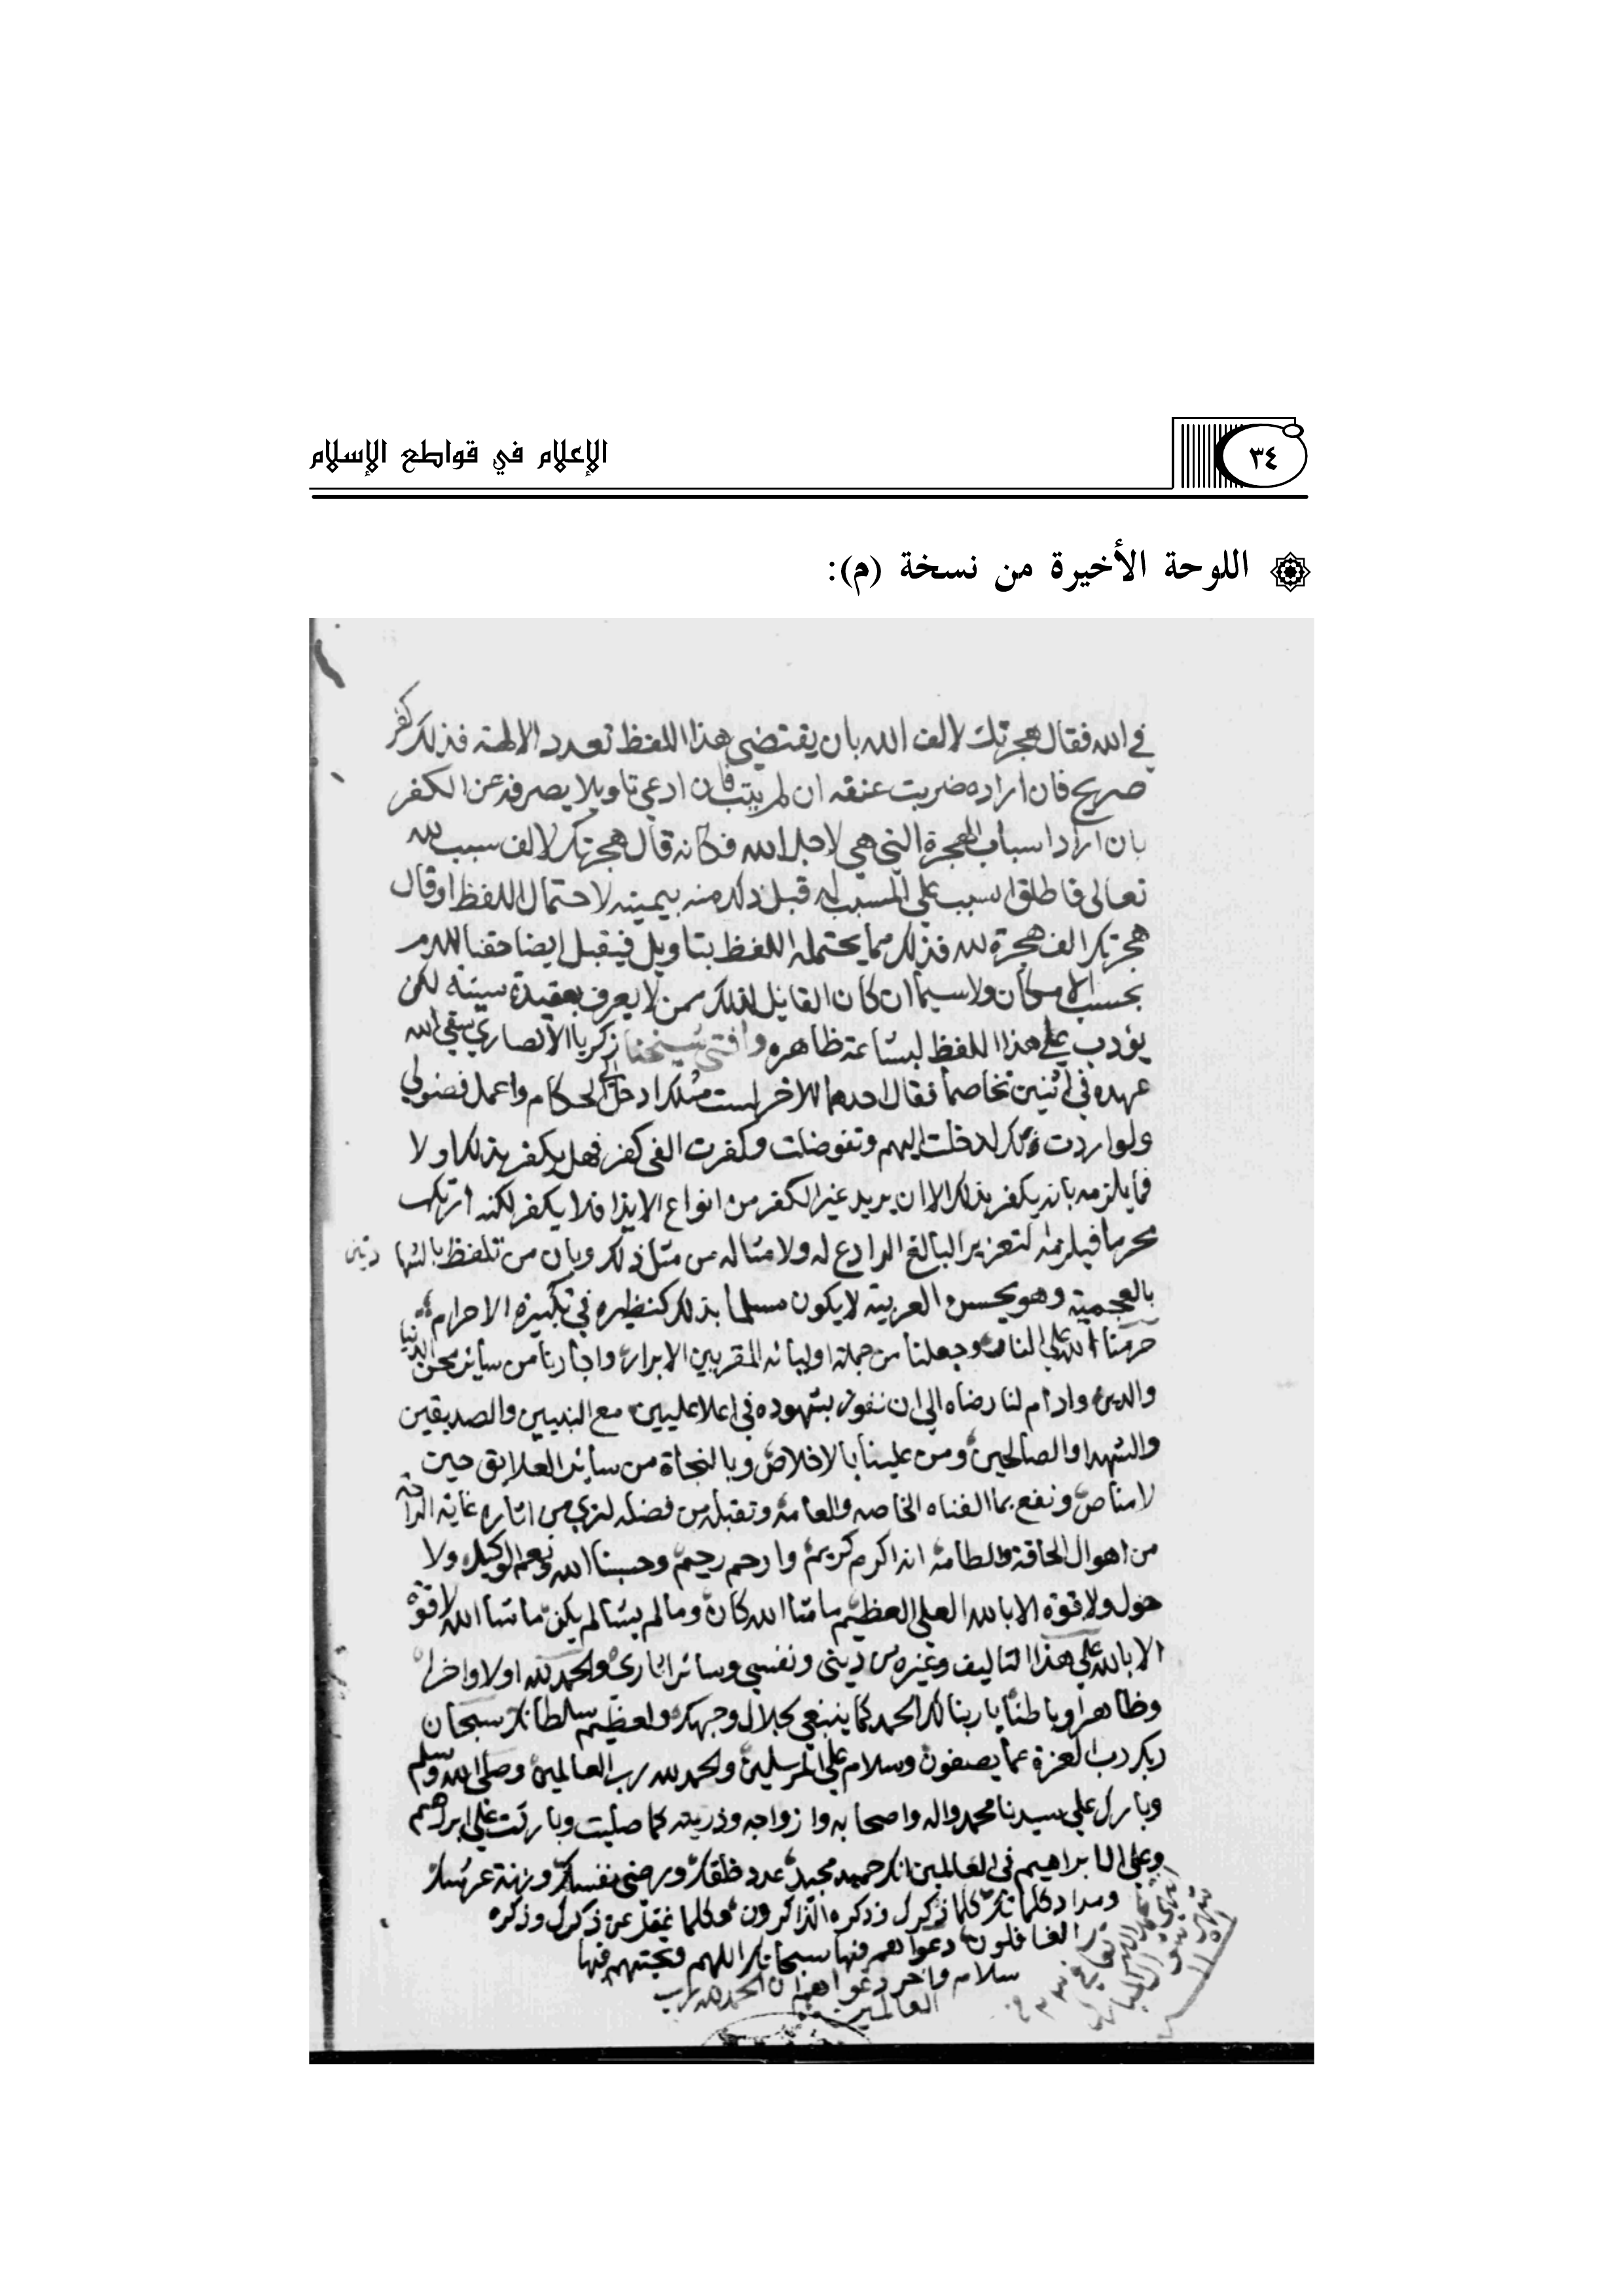 ٣٤
الإعلام في قواطع الإسلام
اللوحة الأخيرة من نسخة (م):
في الله فقال هجرتك لالف الله بان يقتضي هذا اللفظ تعدد الالهة فذلك كفر
صريح فان اراده ضربت عنقه ان لم يتب فان ادعي تاويلا يصرفه عن الكفر
بان اراد اسباب الهجرة التي هي لاجل الله فكانه قال هجرتك لالف سبب لله
تعالى فاطلق السبب علي المسبب قبل ذلك منه بيمينه لاحتمال اللفظ او قال
هجرتك الف هجرة لله فذلك مما يحتمله اللفظ بتاويل فيقبل ايضا حقنا للدم
بحسب الامكان ولاسيما ان كان القايل لذلك ممن لا يعرف بعقيدة سيئه لكن
يؤدب علي هذا اللفظ لبشاعة ظاهره وافتى شيخنا زكريا الانصاري سقي الله
عهده في اثنين تخاصما فقال احدهما للاخر لست مثلك ادخل الي الحكام واعمل فضولي
ولو اردت ذلك لدخلت اليهم وتفوضلت وكفرت الفي كفر فهل يكفر بذلك او لا
فما يلزمه بانه يكفر بذلك الا ان يريد غير الكفر من انواع الايذا فلا يكفر لكنه ارتكب
محرما فيلزمه التعزير البالغ الرادع له ولامثاله من مثل ذلك وبان من تلفظ بالشها دتين
بالعجمية وهو يحسن العربية لا يكون مسلما بذلك كنظيره في تكبيرة الاحرام
حرمنا الله علي النار وجعلنا من جملة اوليائه المقربين الابرار واجارنا من ساير محن الدنيا
والدين وادام لنا رضاه الي ان نفوز بشهوده في اعلا عليين مع النبيين والصديقين
والشهدا والصالحين ومن علينا بالاخلاص وبالنجاة من سائر العلايق حين
لامناص ونفع بما الفناه الخاصه والعامة وتقبله من فضله لنري من اثاره غاية الراحة
من اهوال الحاقة والطامة انه اكرم كريم وارحم رحيم وحسبنا الله ونعم الوكيل ولا
حول ولا قوة الا بالله العلي العظيم ما شا الله كان وما لم يشا لم يكن ما شا الله لا قوة
الا بالله علي هذا التاليف وغيره من ديني ونفسي وسائر اثاري والحمد لله اولا واخرا
وظاهرا وباطنا يا ربنا لك الحمد كما ينبغي لجلال وجهك ولعظيم سلطانك سبحان
ربك رب العزة عما يصفون وسلام علي المرسلين والحمد لله رب العالمين وصلى الله وسلم
وبارك علي سيدنا محمد واله واصحابه وازواجه وذريته كما صليت وباركت علي ابراهيم
وعلى ال ابراهيم في العالمين انك حميد مجيد عدد خلقك ورضى نفسك وزنة عرشك
ومداد كلماتك كلما ذكرك وذكره الذاكرون وكلما غفل عن ذكرك وذكره
الغافلون دعواهم فيها سبحانك اللهم وتحيتهم فيها
سلام واخر دعواهم ان الحمد لله رب
العالمين